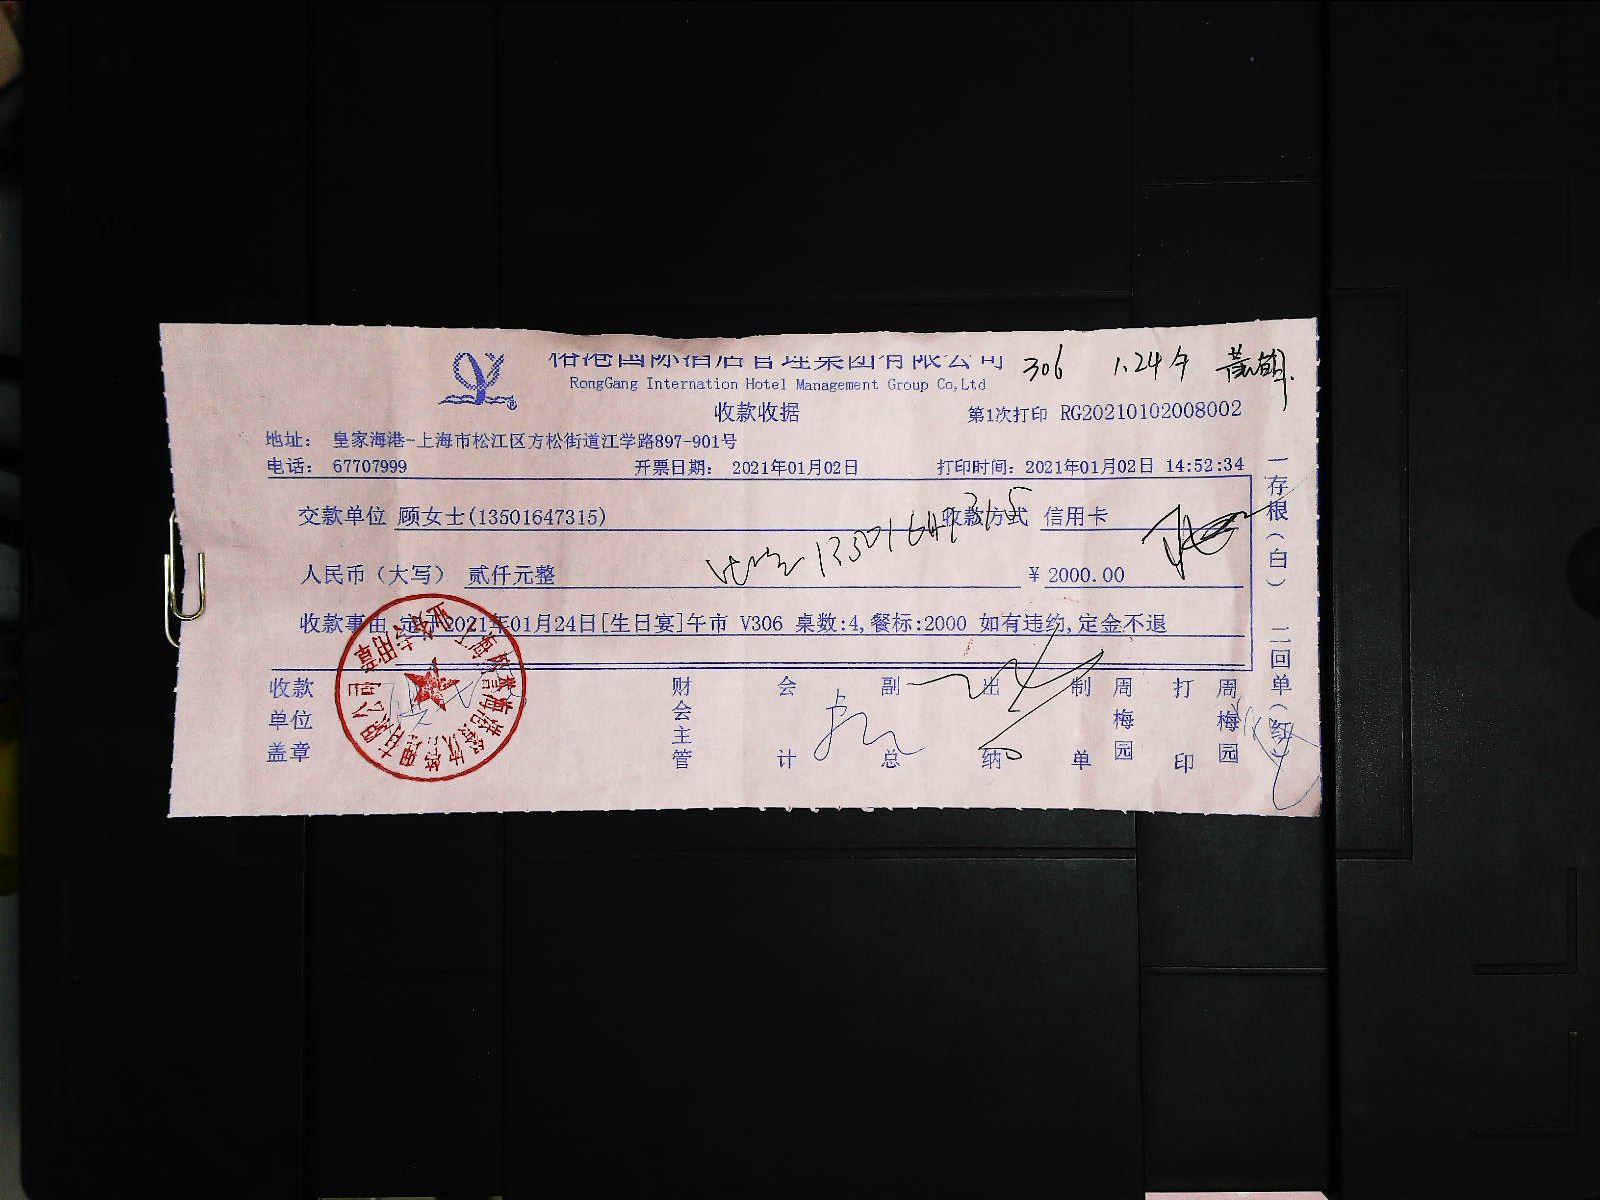 国际酒店管理集团有限公司
306 1.24午
RongGang Internation Hotel Management Group Co,Ltd
收款收据
第1次打印 RG20210102008002
地址： 皇家海港-上海市松江区方松街道江学路897-901号
电话： 67707999 开票日期： 2021年01月02日 打印时间：2021年01月02日 14:52:34
交款单位 顾女士(13501647315) 收款方式 信用卡
13501647315
人民币（大写） 贰仟元整 ¥ 2000.00
收款事由 定于2021年01月24日[生日宴]午市 V306 桌数:4,餐标:2000 如有违约,定金不退
收款单位盖章 财会主管 会计 副总 出纳 制单 周梅园 打印 周梅园
一存根（白） 二回单（红）
业务专用章